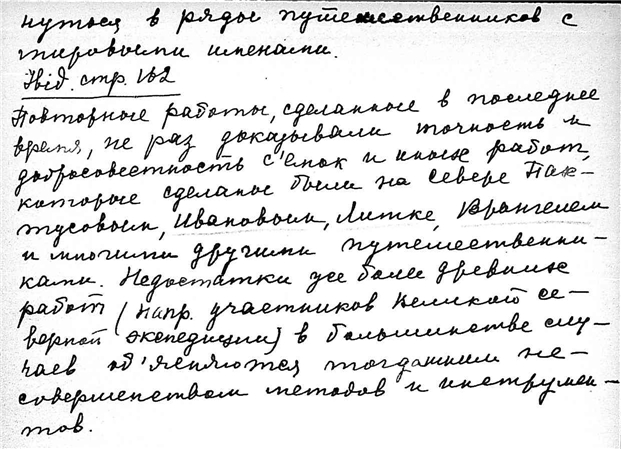 нуться в ряды путешественников с
мировыми именами.
Ibid. стр. 162
Повторные работы, сделанные в последнее
время, не раз доказывали точность и
добросовестность с'емок и иных работ,
которые сделаны были на севере Пах-
тусовым, Ивановым, Литке, Врангелем
и многими другими путешественни-
ками. Недостатки же более древних
работ (напр. участников Великой се-
верной экспедиции) в большинстве слу-
чаев об'ясняются тогдашним не-
совершенством методов и инструмен-
тов.